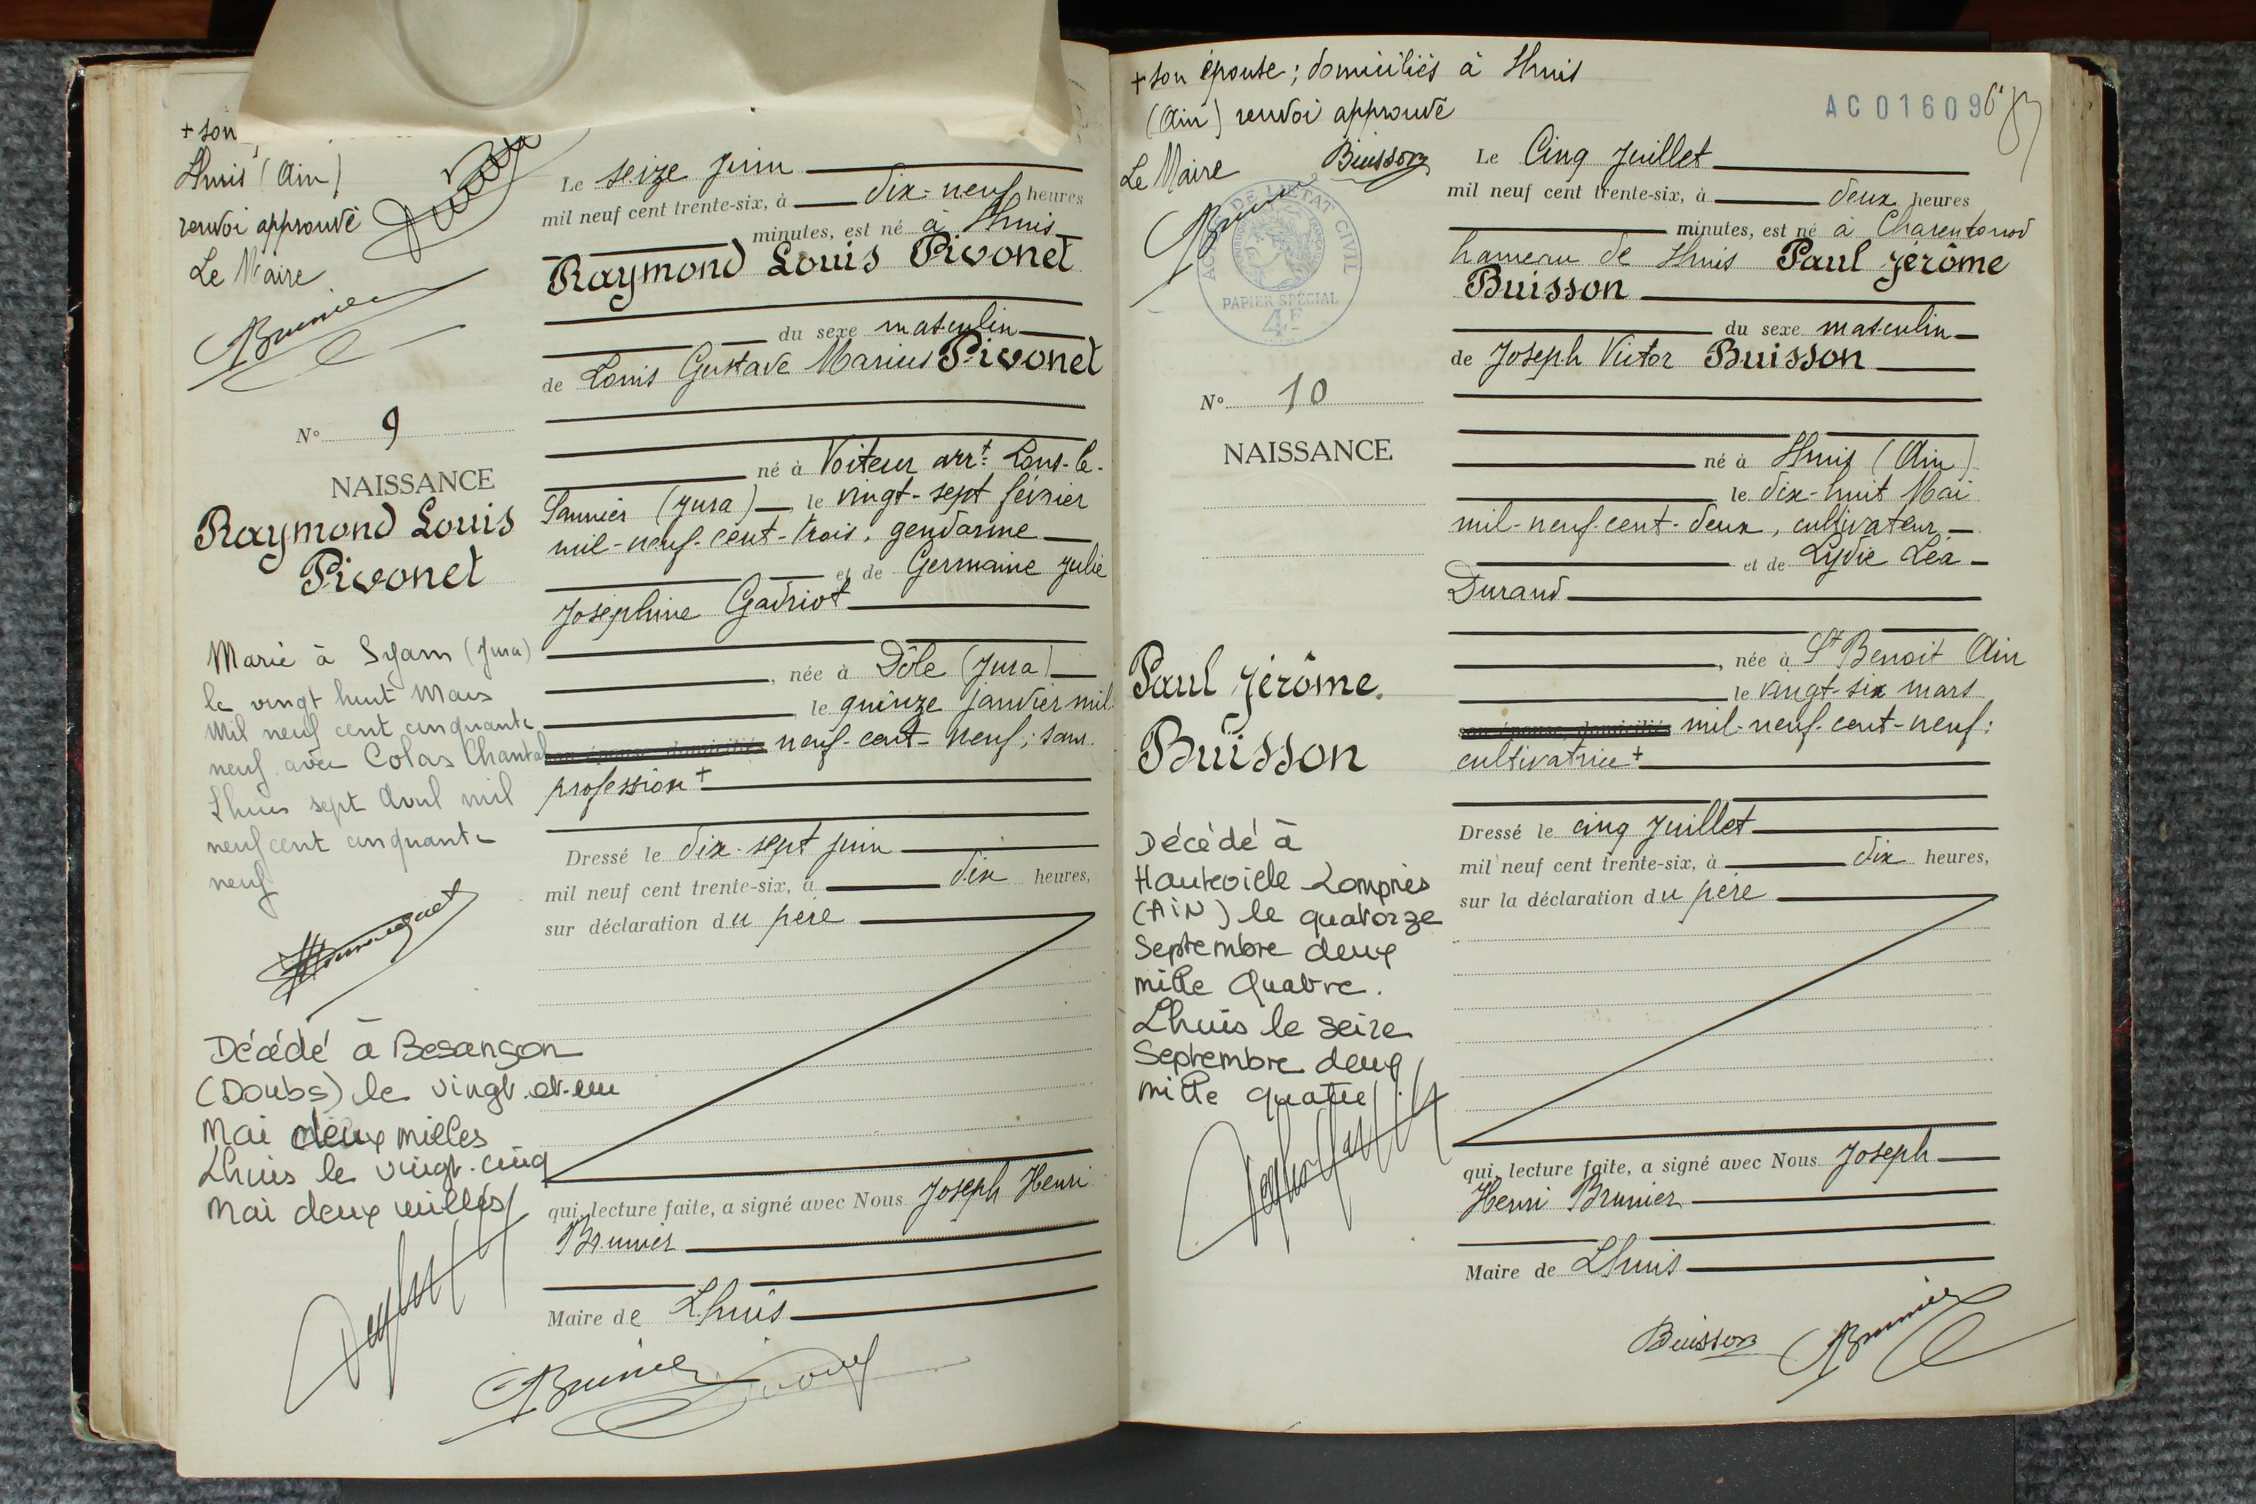 + son
Lhuis (Ain)
renvoi approuvé
Le Maire
Brunier
N° 9
NAISSANCE
Raymond Louis
Pivonet
Marié à Syam (Jura)
le vingt huit Mars
mil neuf cent cinquante
neuf avec Colas Chantal
Lhuis sept Avril mil
neuf cent cinquante
neuf
Décédé à Besançon
(Doubs) le vingt-et-un
Mai deux milles
Lhuis le vingt-cinq
Mai deux milles
Le seize Juin
mil neuf cent trente-six, à dix-neuf heures
minutes, est né à Lhuis
Raymond Louis Pivonet
du sexe masculin
de Louis Gustave Marius Pivonet
né à Voiteur arrt. Lons-le-
Saunier (Jura) le vingt-sept février
mil-neuf-cent-trois, gendarme
et de Germaine Julie
Joséphine Gadriot
, née à Dôle (Jura)
, le quinze janvier mil
son épouse, domiciliés neuf-cent-neuf; sans
profession +
Dressé le dix-sept juin
mil neuf cent trente-six, à dix heures,
sur déclaration du père
qui, lecture faite, a signé avec Nous Joseph Henri
Brunier
Maire de Lhuis
Brunier
+ son épouse; domiciliés à Lhuis
(Ain) renvoi approuvé
Le Maire Buisson
Brunier
DE L'ETAT CIVIL
PAPIER SPÉCIAL
4F
AC 01609
N° 10
NAISSANCE
Paul Jérôme
Buisson
Décédé à
Hauteville Lompnes
(AIN) le quatorze
Septembre deux
mille Quatre.
Lhuis le seize
Septembre deux
mille quatre
Le Cinq Juillet
mil neuf cent trente-six, à deux heures
minutes, est né à Charentonod
hameau de Lhuis Paul Jérôme
Buisson
du sexe masculin
de Joseph Victor Buisson
né à Lhuis (Ain)
le dix-huit Mai
mil-neuf-cent-deux, cultivateur,
et de Lydie Léa
Durand
, née à St Benoit Ain
le vingt-six mars
son épouse, domiciliés mil-neuf-cent-neuf;
cultivatrice +
Dressé le cinq Juillet
mil neuf cent trente-six, à dix heures,
sur la déclaration du père
qui, lecture faite, a signé avec Nous Joseph
Henri Brunier
Maire de Lhuis
Buisson Brunier